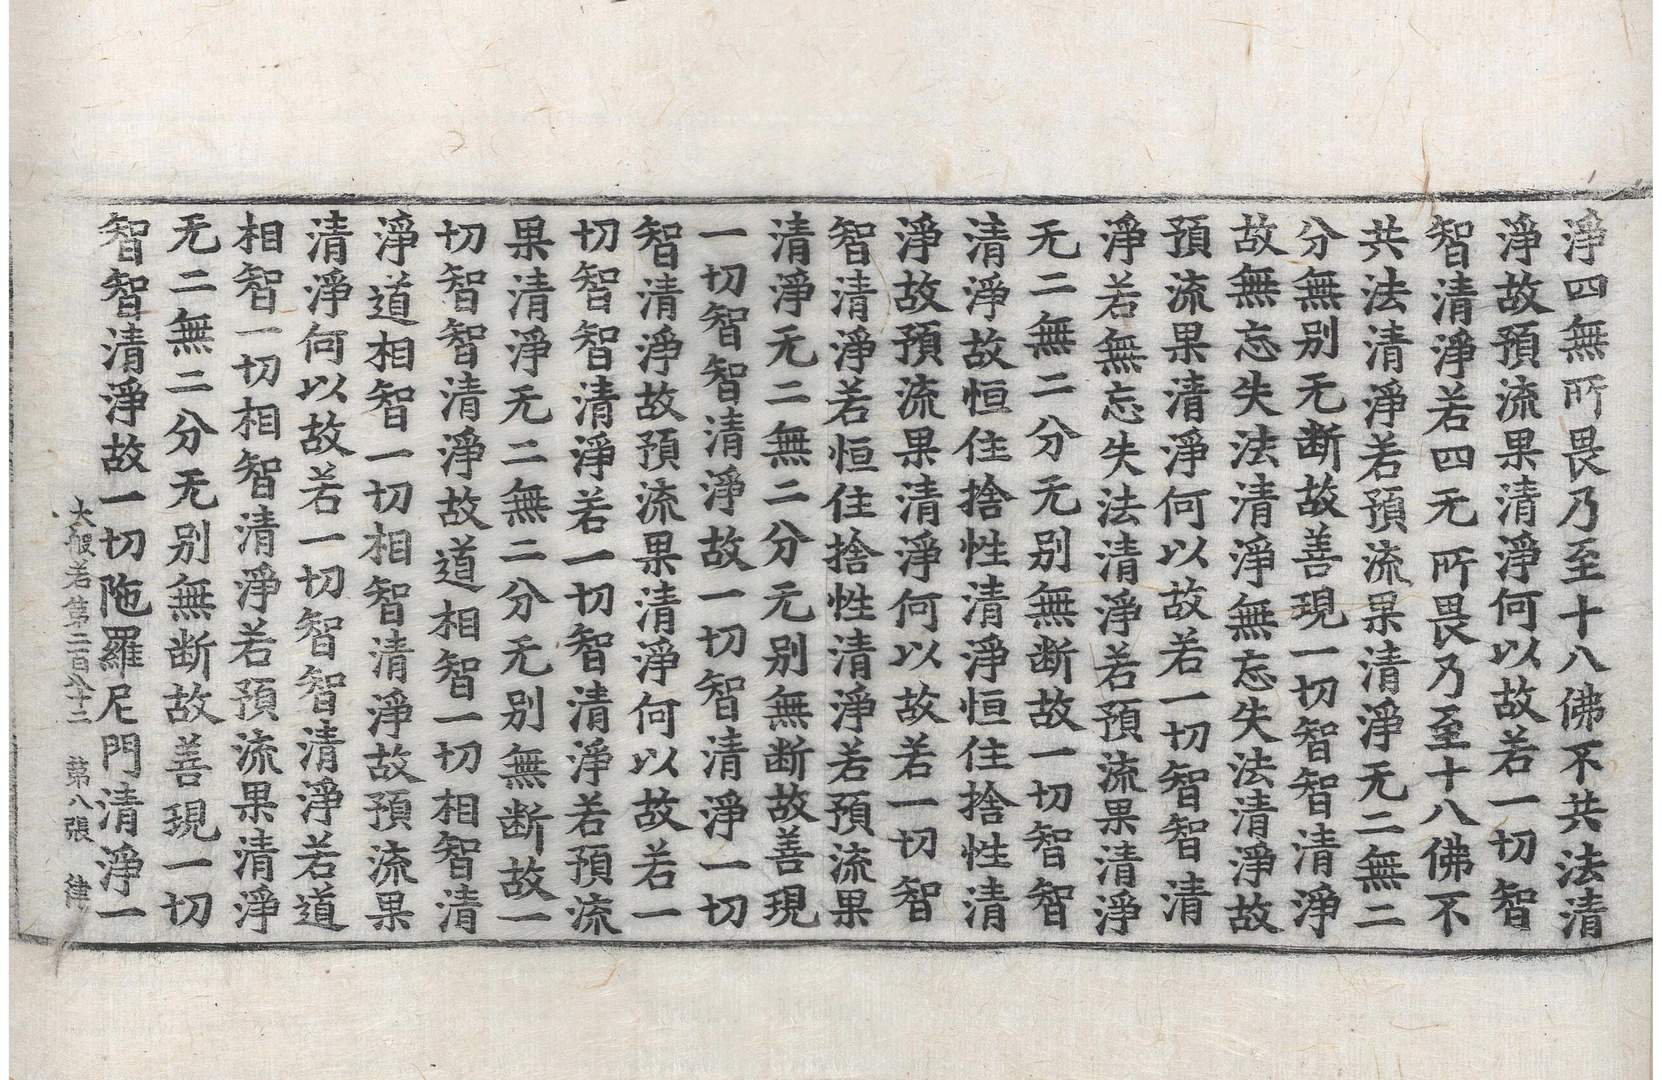 淨四無所畏乃至十八佛不共法清
淨故預流果清淨何以故若一切智
智清淨若四无所畏乃至十八佛不
共法清淨若預流果清淨无二無二
分無别无断故善現一切智智清淨
故無忘失法清淨無忘失法清淨故
預流果清淨何以故若一切智智清
淨若無忘失法清淨若預流果清淨
无二無二分无别無断故一切智智
清淨故恒住捨性清淨恒住捨性清
淨故預流果清淨何以故若一切智
智清淨若恒住捨性清淨若預流果
清淨无二無二分无别無断故善現
一切智智清淨故一切智清淨一切
智清淨故預流果清淨何以故若一
切智智清淨若一切智清淨若預流
果清淨无二無二分无别無断故一
切智智清淨故道相智一切相智清
淨道相智一切相智清淨故預流果
清淨何以故若一切智智清淨若道
相智一切相智清淨若預流果清淨
无二無二分无别無断故善現一切
智智清淨故一切陁羅尼門清淨一
大般若第二百八十二 第八張 律